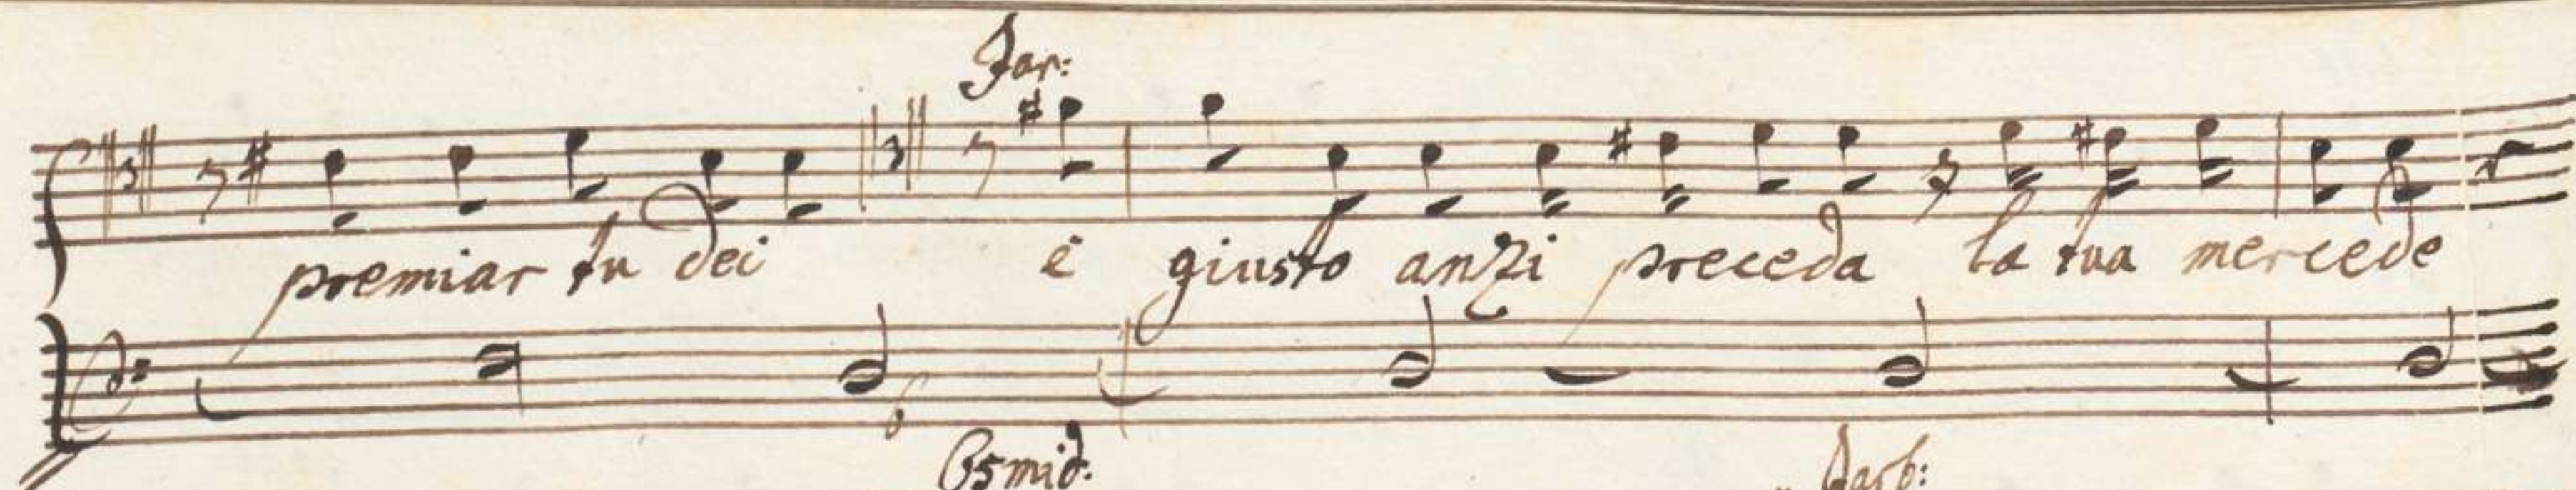 Jar:
premiar tu dei è giusto anzi preceda la tua mercede
6
Osmid: Jarb: